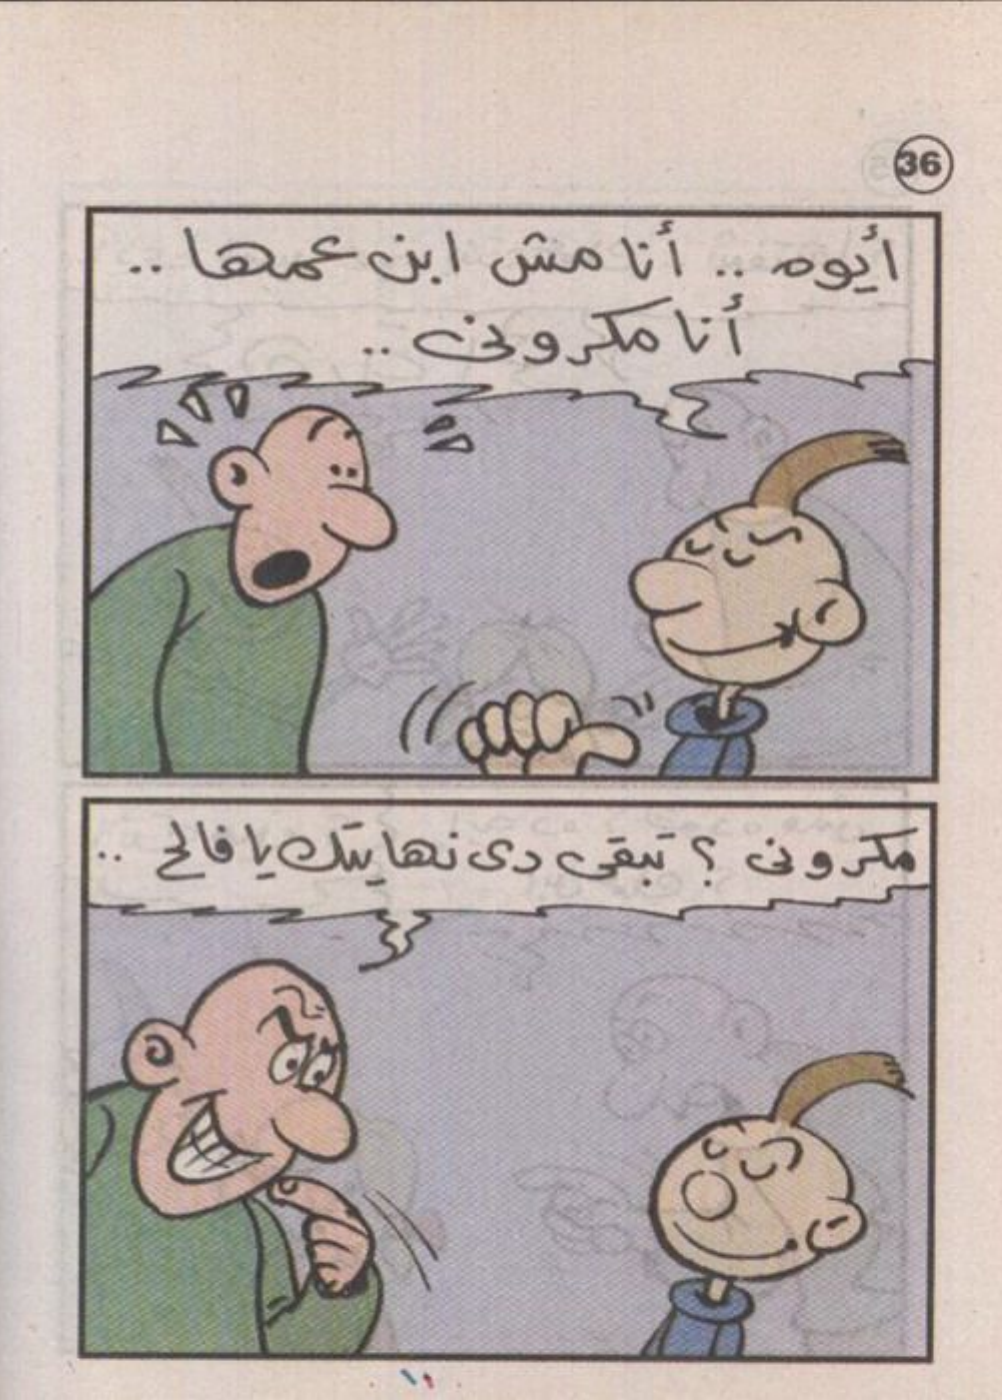 36
أيوه .. أنا مش ابن عمها ..
أنا مكرونى ..
مكرونى ؟ تبقى دى نهايتك يا فالح ..